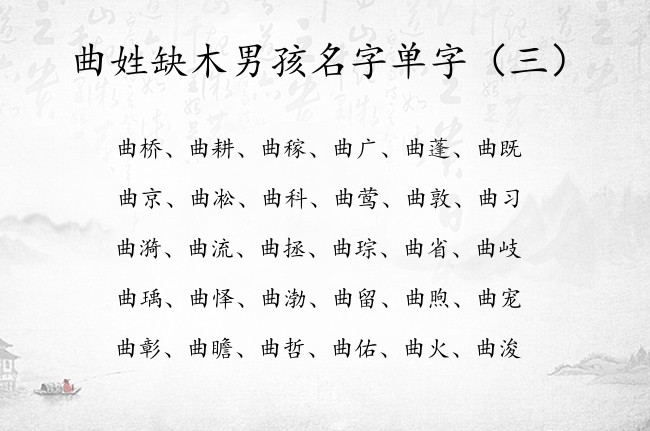 曲姓缺木男孩名字单字（三）
曲桥、曲耕、曲稼、曲广、曲蓬、曲既
曲京、曲凇、曲科、曲莺、曲敦、曲习
曲漪、曲流、曲拯、曲琮、曲省、曲歧
曲瑀、曲怿、曲渤、曲留、曲煦、曲宠
曲彰、曲瞻、曲哲、曲佑、曲火、曲浚